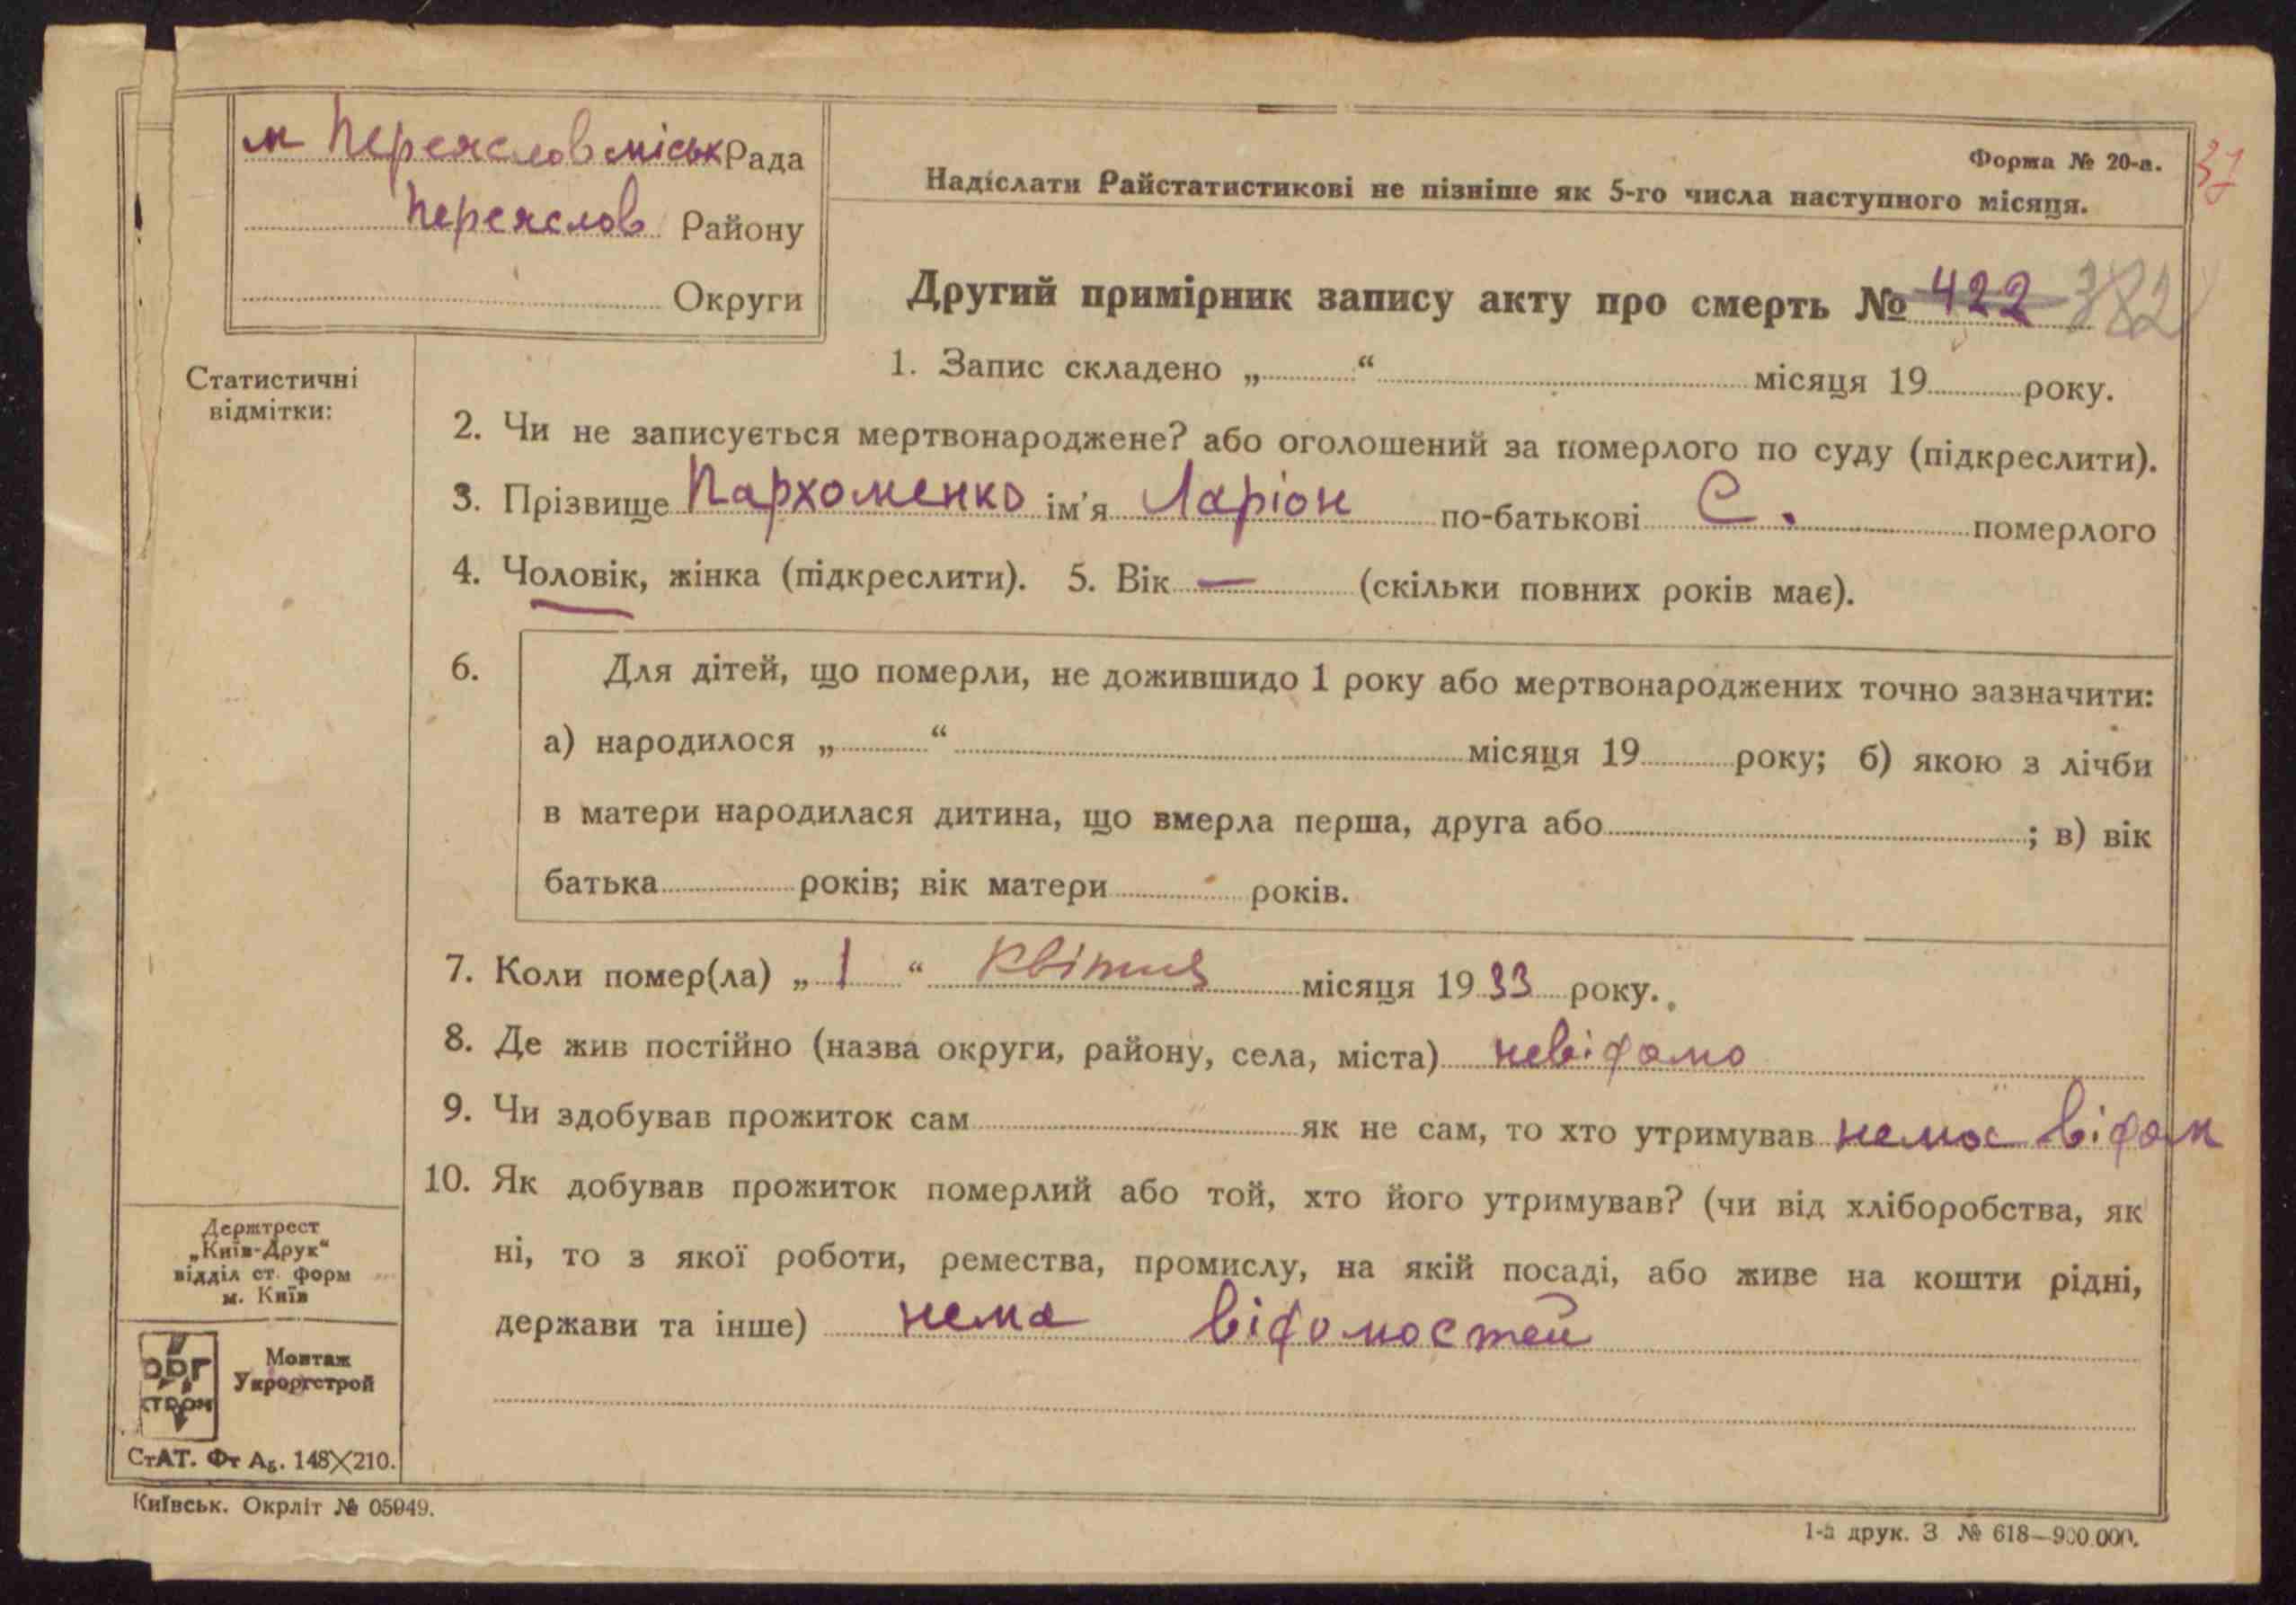 м Переяслов міськ Рада
Переяслов Району
Округи
Форма № 20-а.
37
Надіслати Райстатистикові не пізніше як 5-го числа наступного місяця.
Другий примірник запису акту про смерть № 422 382
Статистичні
відмітки:
1. Запис складено „ “ місяця 19 року.
2. Чи не записується мертвонароджене? або оголошений за померлого по суду (підкреслити).
3. Прізвище Пархоменко ім'я Ларіон по-батькові С. померлого
4. Чоловік, жінка (підкреслити). 5. Вік — (скільки повних років має).
6. Для дітей, що померли, не дожившидо 1 року або мертвонароджених точно зазначити:
а) народилося „ “ місяця 19 року; б) якою з лічби
в матери народилася дитина, що вмерла перша, друга або ; в) вік
батька років; вік матери років.
7. Коли помер(ла) „ 1 “ Квітня місяця 19 33 року.
8. Де жив постійно (назва округи, району, села, міста) невідомо
9. Чи здобував прожиток сам як не сам, то хто утримував немає відом
10. Як добував прожиток померлий або той, хто його утримував? (чи від хліборобства, як
ні, то з якої роботи, ремества, промислу, на якій посаді, або живе на кошти рідні,
держави та інше) нема відомостей
Держтрест
„Київ-Друк“
відділ ст. форм
м. Київ
ОРГ
СТРОЙ
Монтаж
Укроргстрой
СтАТ. Фт А₅. 148×210.
Київськ. Окрліт № 05949.
1-а друк. З № 618—900.000.